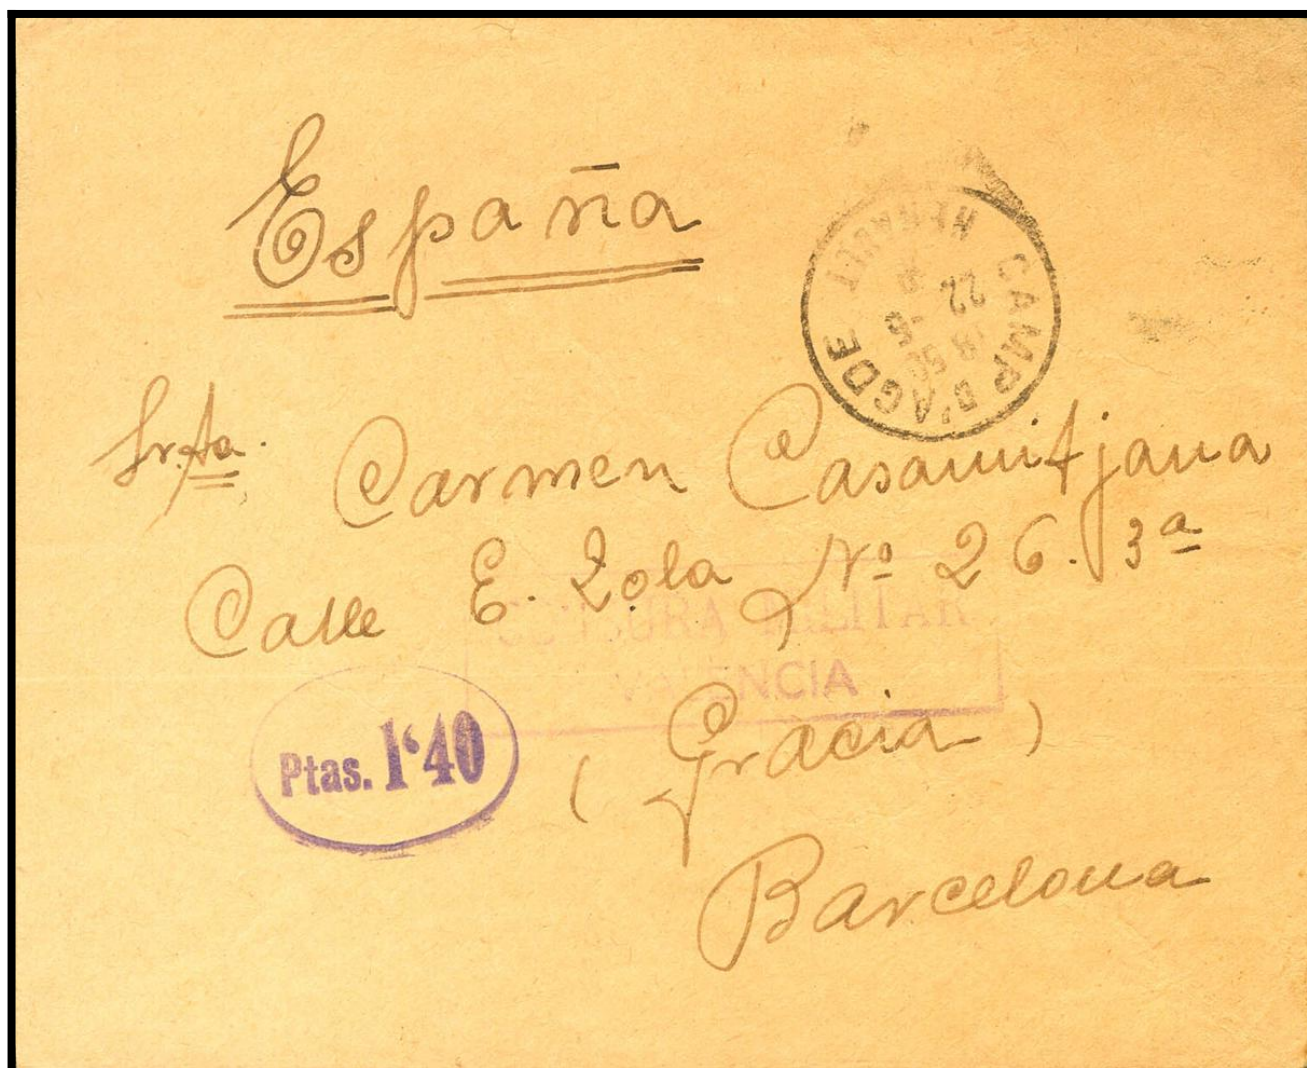 España
CAMP D'AGDE
HERAULT
18 50
22 -6
Srta.
Carmen Casamitjana
Calle E. Zola Nº 26. 3ª
CENSURA MILITAR
VALENCIA
Ptas. 1'40
(Gracia)
Barcelona